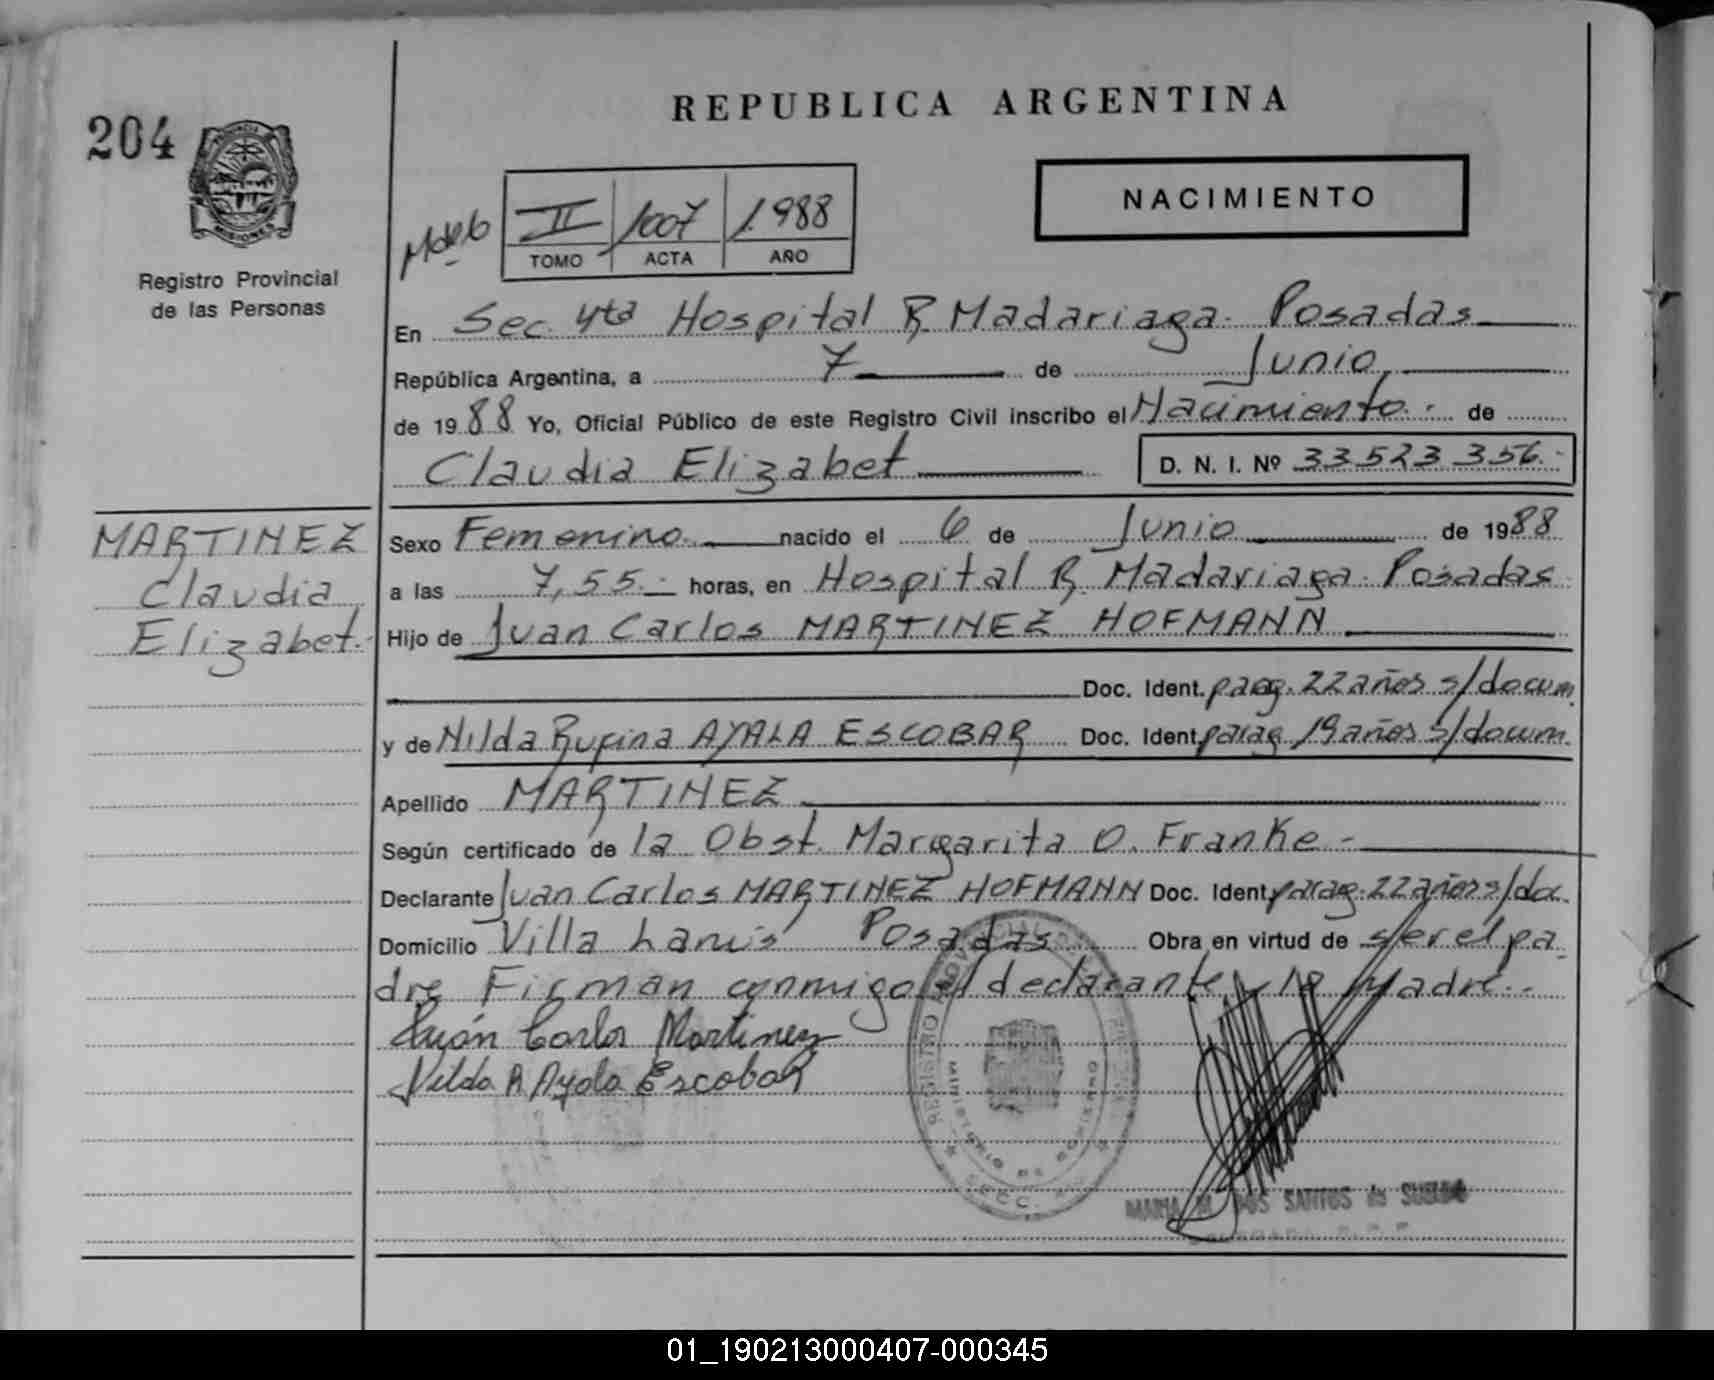 REPUBLICA ARGENTINA
204
NACIMIENTO
II 1007 1.988
TOMO ACTA AÑO
PROVINCIA DE
MISIONES
Registro Provincial
de las Personas
En Sec. 4ta Hospital R. Madariaga. Posadas
República Argentina, a 7 de Junio
de 1988 Yo, Oficial Público de este Registro Civil inscribo el Nacimiento. de
Claudia Elizabet D. N. I. Nº 33.523.356.-
MARTINEZ
Claudia
Elizabet.-
Sexo Femenino. nacido el 6 de Junio de 1988
a las 7,55.- horas, en Hospital R. Madariaga. Posadas
Hijo de Juan Carlos MARTINEZ HOFMANN
Doc. Ident. parag. 22 años s/docum.
y de Nilda Rufina AYALA ESCOBAR Doc. Ident. parag. 19 años s/docum.
Apellido MARTINEZ
Según certificado de la Obst. Margarita O. Franke -
Declarante Juan Carlos MARTINEZ HOFMANN Doc. Ident. parag. 22 años s/doc.
Domicilio Villa Lanús Posadas Obra en virtud de ser el pa
dre Firman conmigo el declarante y la Madre.-
Juan Carlos Martinez
Nilda R Ayala Escobar
REGISTRO PROVINCIAL
MINISTERIO DE GOBIERNO
MARIA M. DOS SANTOS de
01_190213000407-000345